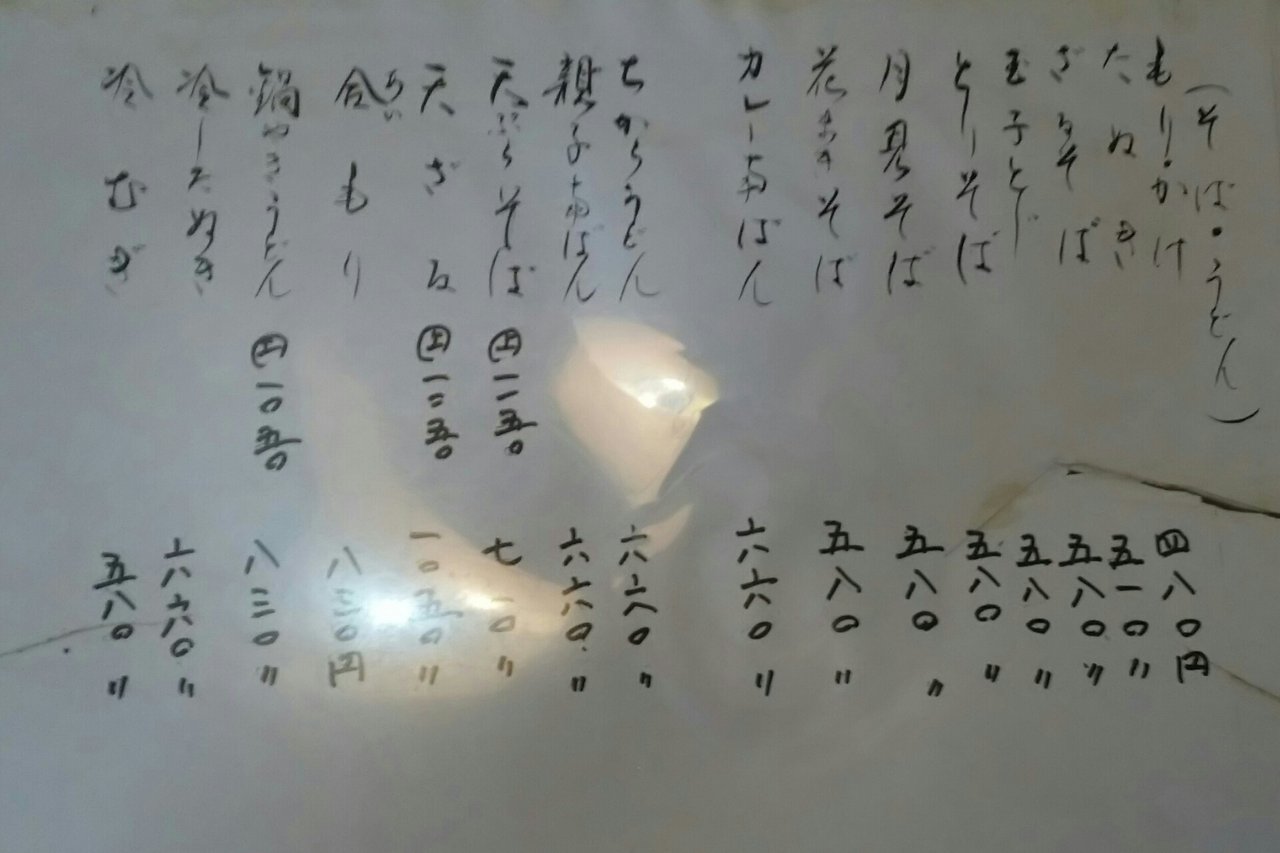 (そば・うどん)
もり・かけ 四八〇円
たぬき 五一〇〃
ざるそば 五八〇〃
玉子とじ 五八〇〃
とりそば 五八〇〃
月見そば 五八〇〃
花まきそば 五八〇〃
カレー南ばん 六六〇〃
ちからうどん 六六〇〃
親子南ばん 六六〇〃
天ぷらそば ㊤一一五〇 七一〇〃
天ざる ㊤一二五〇 一〇五〇〃
合もり 八三〇円
鍋やきうどん ㊤一〇五〇 八三〇〃
冷したぬき 六六〇〃
冷むぎ 五八〇〃